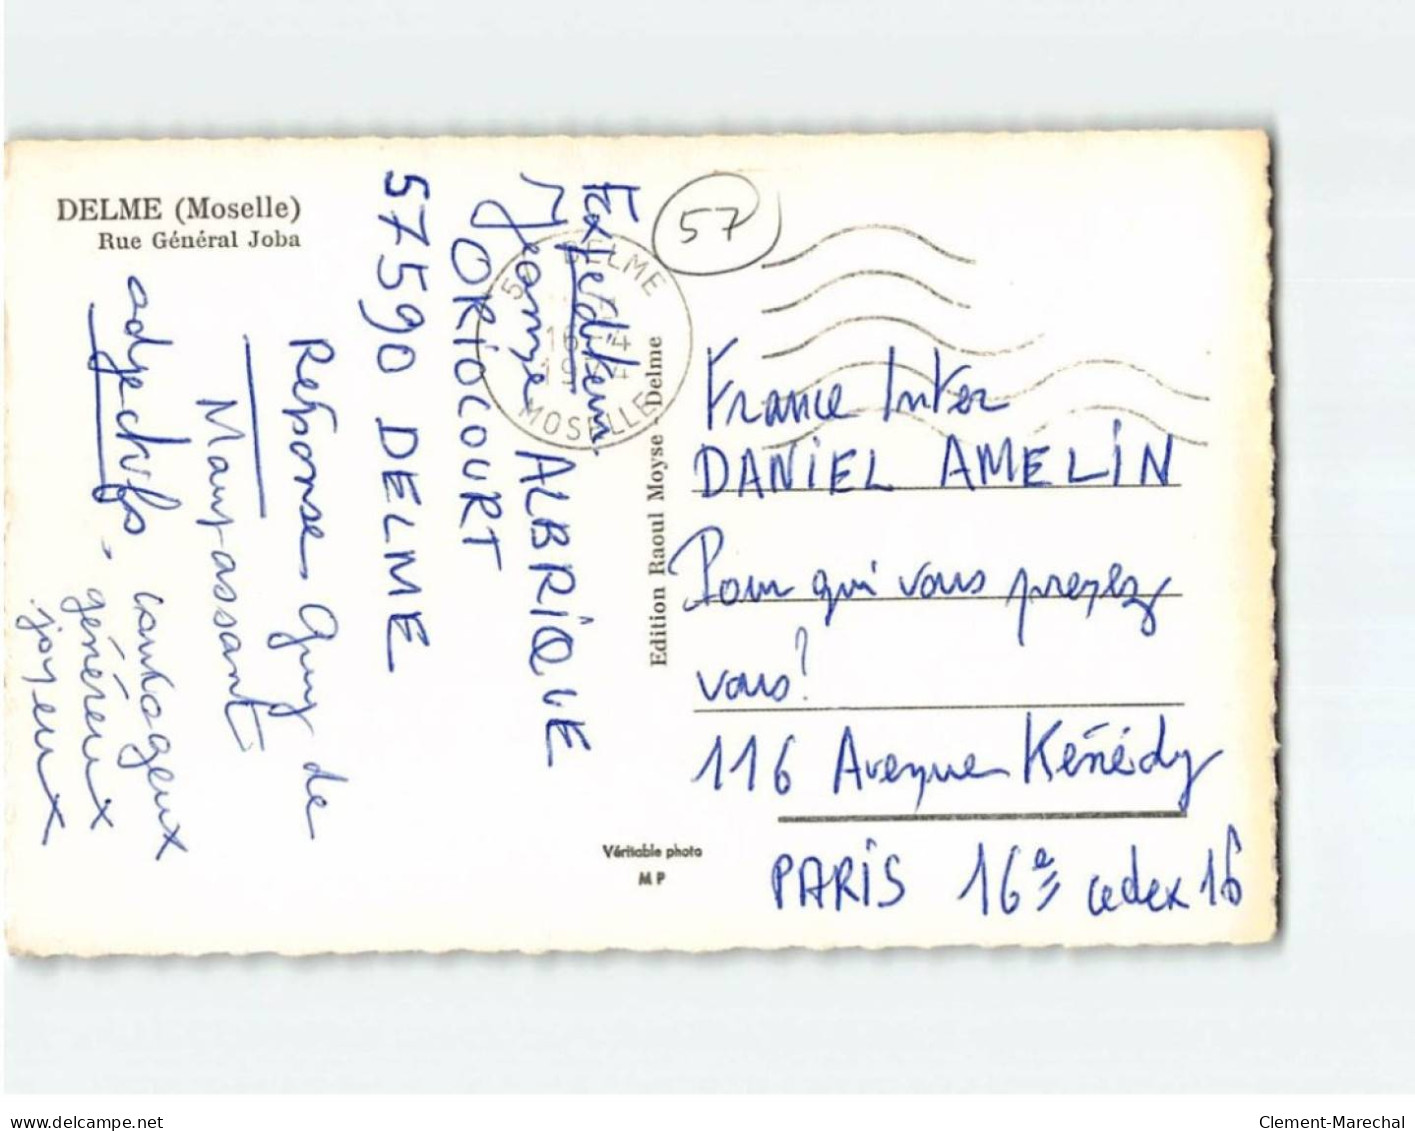 DELME (Moselle)
Rue Général Joba
Expediteur
Jeanne ALBRIQUE
ORIOCOURT
57590 DELME
Reponse Guy de
Maupassant
adjectifs - courageux
généreux
joyeux
57
DELME
16-4
MOSELLE
Edition Raoul Moyse - Delme
France Inter
DANIEL AMELIN
Pour qui vous prenez
vous?
116 Avenue Kénédy
PARIS 16e cedex 16
Véritable photo
MP
delcampe.net
Clement-Marechal